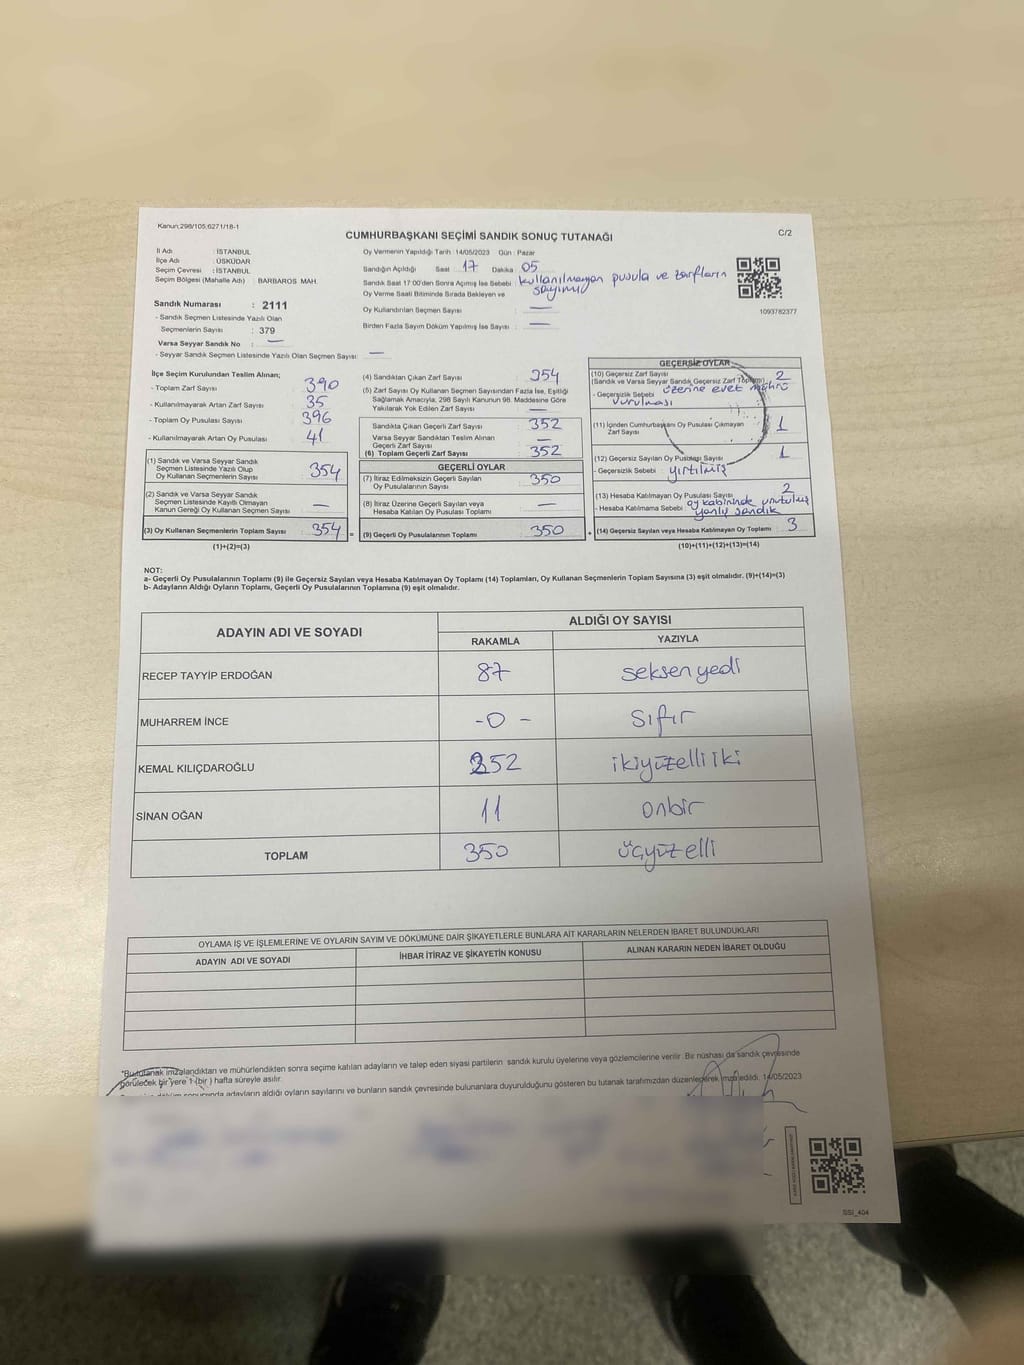 Kanun;298/105;6271/18-1
C/2
CUMHURBAŞKANI SEÇİMİ SANDIK SONUÇ TUTANAĞI
İl Adı : İSTANBUL
İlçe Adı : ÜSKÜDAR
Seçim Çevresi : İSTANBUL
Seçim Bölgesi (Mahalle Adı) : BARBAROS MAH.
Sandık Numarası : 2111
- Sandık Seçmen Listesinde Yazılı Olan
Seçmenlerin Sayısı : 379
Varsa Seyyar Sandık No : —
- Seyyar Sandık Seçmen Listesinde Yazılı Olan Seçmen Sayısı : —
Oy Vermenin Yapıldığı Tarih : 14/05/2023 Gün : Pazar
Sandığın Açıldığı Saat : 17 Dakika : 05
Sandık Saat 17:00'den Sonra Açılmış İse Sebebi : kullanılmayan pusula ve zarfların
sayımı
Oy Verme Saati Bitiminde Sırada Bekleyen ve
Oy Kullandırılan Seçmen Sayısı : —
Birden Fazla Sayım Döküm Yapılmış İse Sayısı : —
1093782377
İlçe Seçim Kurulundan Teslim Alınan;
- Toplam Zarf Sayısı : 390
- Kullanılmayarak Artan Zarf Sayısı : 35
- Toplam Oy Pusulası Sayısı : 396
- Kullanılmayarak Artan Oy Pusulası : 41
(1) Sandık ve Varsa Seyyar Sandık
Seçmen Listesinde Yazılı Olup
Oy Kullanan Seçmenlerin Sayısı : 354
(2) Sandık ve Varsa Seyyar Sandık
Seçmen Listesinde Kayıtlı Olmayan
Kanun Gereği Oy Kullanan Seçmen Sayısı : —
(3) Oy Kullanan Seçmenlerin Toplam Sayısı : 354 =
(1)+(2)=(3)
(4) Sandıktan Çıkan Zarf Sayısı : 354
(5) Zarf Sayısı Oy Kullanan Seçmen Sayısından Fazla İse, Eşitliği
Sağlamak Amacıyla, 298 Sayılı Kanunun 98. Maddesine Göre
Yakılarak Yok Edilen Zarf Sayısı : —
Sandıkta Çıkan Geçerli Zarf Sayısı : 352
Varsa Seyyar Sandıktan Teslim Alınan
Geçerli Zarf Sayısı : —
(6) Toplam Geçerli Zarf Sayısı : 352
GEÇERLİ OYLAR
(7) İtiraz Edilmeksizin Geçerli Sayılan
Oy Pusulalarının Sayısı : 350
(8) İtiraz Üzerine Geçerli Sayılan veya
Hesaba Katılan Oy Pusulası Toplamı : —
(9) Geçerli Oy Pusulalarının Toplamı : 350 +
GEÇERSİZ OYLAR
(10) Geçersiz Zarf Sayısı : 2
(Sandık ve Varsa Seyyar Sandık Geçersiz Zarf Toplamı)
- Geçersizlik Sebebi : üzerine evet mührü
vurulması
(11) İçinden Cumhurbaşkanı Oy Pusulası Çıkmayan
Zarf Sayısı : 1
(12) Geçersiz Sayılan Oy Pusulası Sayısı : 1
- Geçersizlik Sebebi : yırtılmış
(13) Hesaba Katılmayan Oy Pusulası Sayısı : 2
- Hesaba Katılmama Sebebi : oy kabininde unutulmuş
yanlış sandık
(14) Geçersiz Sayılan veya Hesaba Katılmayan Oy Toplamı : 3
(10)+(11)+(12)+(13)=(14)
NOT:
a- Geçerli Oy Pusulalarının Toplamı (9) ile Geçersiz Sayılan veya Hesaba Katılmayan Oy Toplamı (14) Toplamları, Oy Kullanan Seçmenlerin Toplam Sayısına (3) eşit olmalıdır. (9)+(14)=(3)
b- Adayların Aldığı Oyların Toplamı, Geçerli Oy Pusulalarının Toplamına (9) eşit olmalıdır.
ADAYIN ADI VE SOYADI ALDIĞI OY SAYISI
RAKAMLA YAZIYLA
RECEP TAYYİP ERDOĞAN 87 seksen yedi
MUHARREM İNCE -0- sıfır
KEMAL KILIÇDAROĞLU 252 ikiyüzelli iki
SİNAN OĞAN 11 onbir
TOPLAM 350 üçyüz elli
OYLAMA İŞ VE İŞLEMLERİNE VE OYLARIN SAYIM VE DÖKÜMÜNE DAİR ŞİKAYETLERLE BUNLARA AİT KARARLARIN NELERDEN İBARET BULUNDUKLARI
ADAYIN ADI VE SOYADI İHBAR İTİRAZ VE ŞİKAYETİN KONUSU ALINAN KARARIN NEDEN İBARET OLDUĞU
*Bu tutanak imzalandıktan ve mühürlendikten sonra seçime katılan adayların ve talep eden siyasi partilerin sandık kurulu üyelerine veya gözlemcilerine verilir. Bir nüshası da sandık çevresinde
görülecek bir yere 1 (bir) hafta süreyle asılır.
sonucunda adayların aldığı oyların sayılarını ve bunların sandık çevresinde bulunanlara duyurulduğunu gösteren bu tutanak tarafımızdan düzenlenerek imza edildi. 14/05/2023
SSI_404